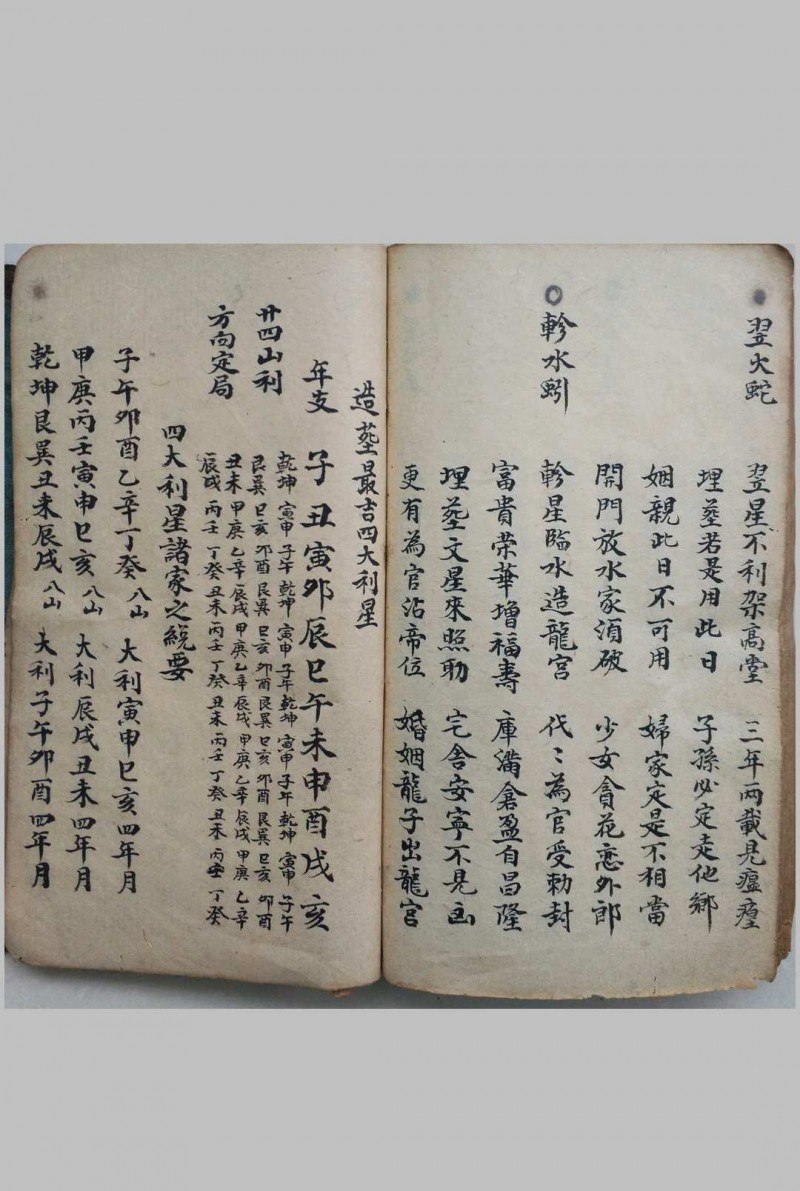 翌火蛇
翌星不利架高堂 三年兩載見瘟瘽
埋塟若是用此日 子孫必定走他鄉
姻親此日不可用 婦家定是不相當
開門放水家須破 少女貪花恋外郎
軫水蚓
軫星臨水造龍宮 代〻為官受勅封
富貴荣華增福壽 庫滿倉盈自昌隆
埋塟文星來照助 宅舍安寧不見凶
更有為官沾帝位 婚姻龍子出龍宮
造塟最吉四大利星
年支 子丑寅卯辰巳午未申酉戌亥
廿四山利
方向定局
乾坤 寅申 子午 乾坤 寅申 子午 乾坤 寅申 子午 乾坤 寅申 子午
艮巽 巳亥 卯酉 艮巽 巳亥 卯酉 艮巽 巳亥 卯酉 艮巽 巳亥 卯酉
丑未 甲庚 乙辛 辰戌 甲庚 乙辛 辰戌 甲庚 乙辛 辰戌 甲庚 乙辛
辰戌 丙壬 丁癸 丑未 丙壬 丁癸 丑未 丙壬 丁癸 丑未 丙壬 丁癸
四大利星諸家之統要
子午卯酉乙辛丁癸八山 大利寅申巳亥四年月
甲庚丙壬寅申巳亥八山 大利辰戌丑未四年月
乾坤艮巽丑未辰戌八山 大利子午卯酉四年月